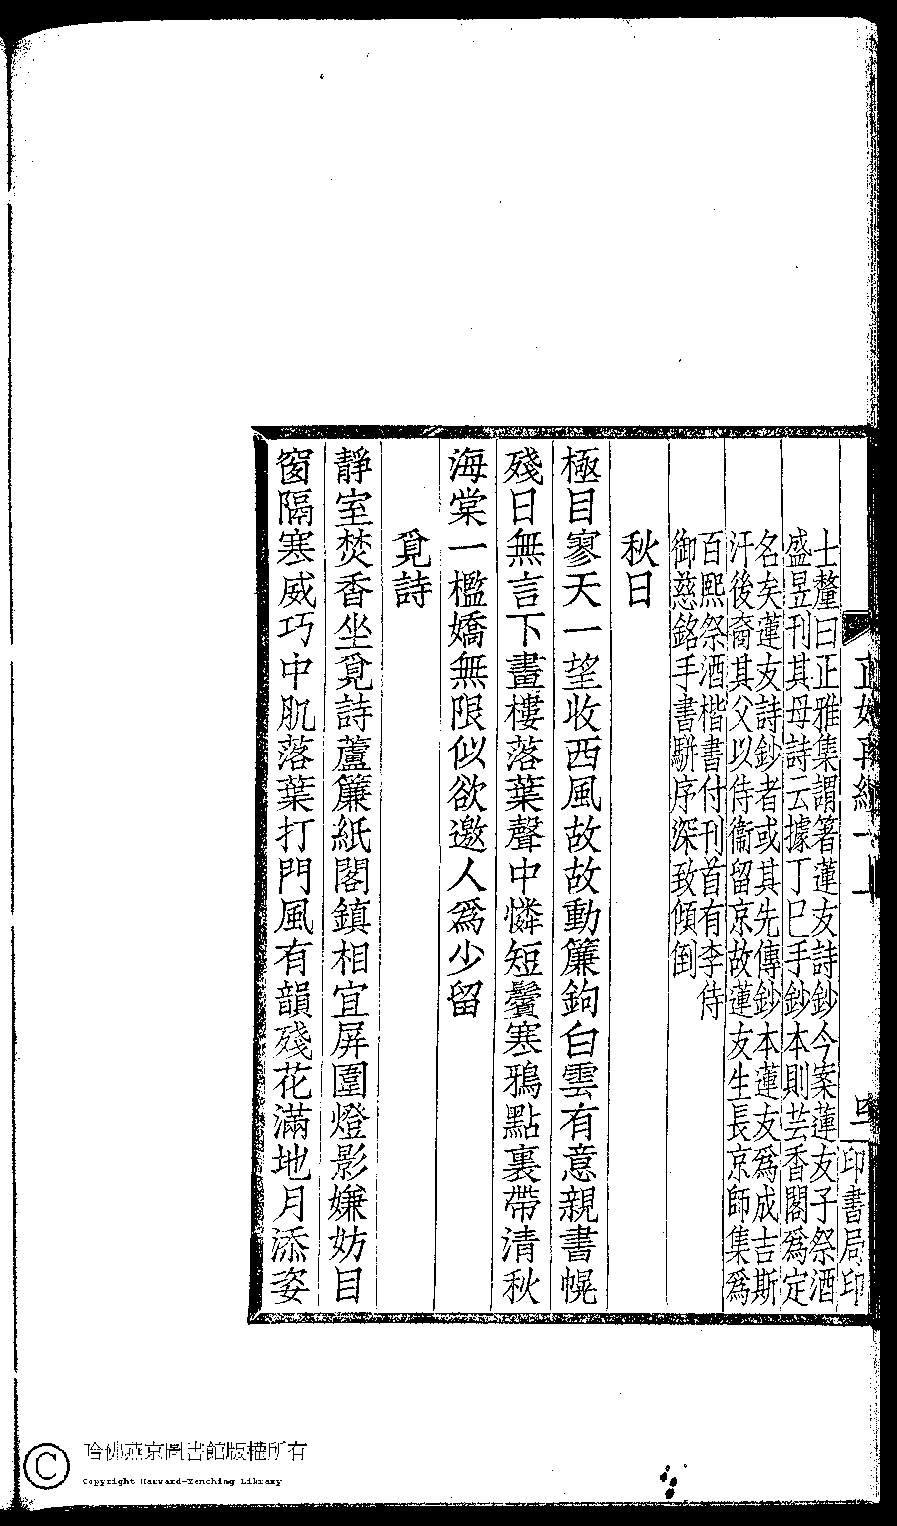 士釐曰正雅集謂箸蓮友詩鈔今案蓮友子祭酒
盛昱刊其母詩云據丁巳手鈔本則芸香閣爲定
名矣蓮友詩鈔者或其先傳鈔本蓮友爲成吉斯
汗後裔其父以侍衞留京故蓮友生長京師集爲
百熙祭酒楷書付刊首有李侍
御慈銘手書駢序深致傾倒
秋日
極目寥天一望收西風故故動簾鉤白雲有意親書幌
殘日無言下畫樓落葉聲中憐短鬢寒鴉點裏帶清秋
海棠一檻嬌無限似欲邀人爲少留
覓詩
靜室焚香坐覓詩蘆簾紙閣鎮相宜屏圍燈影嫌妨目
窗隔寒威巧中肌落葉打門風有韻殘花滿地月添姿
印書局印
哈佛燕京圖書館版權所有
Copyright Harvard-Yenching Library